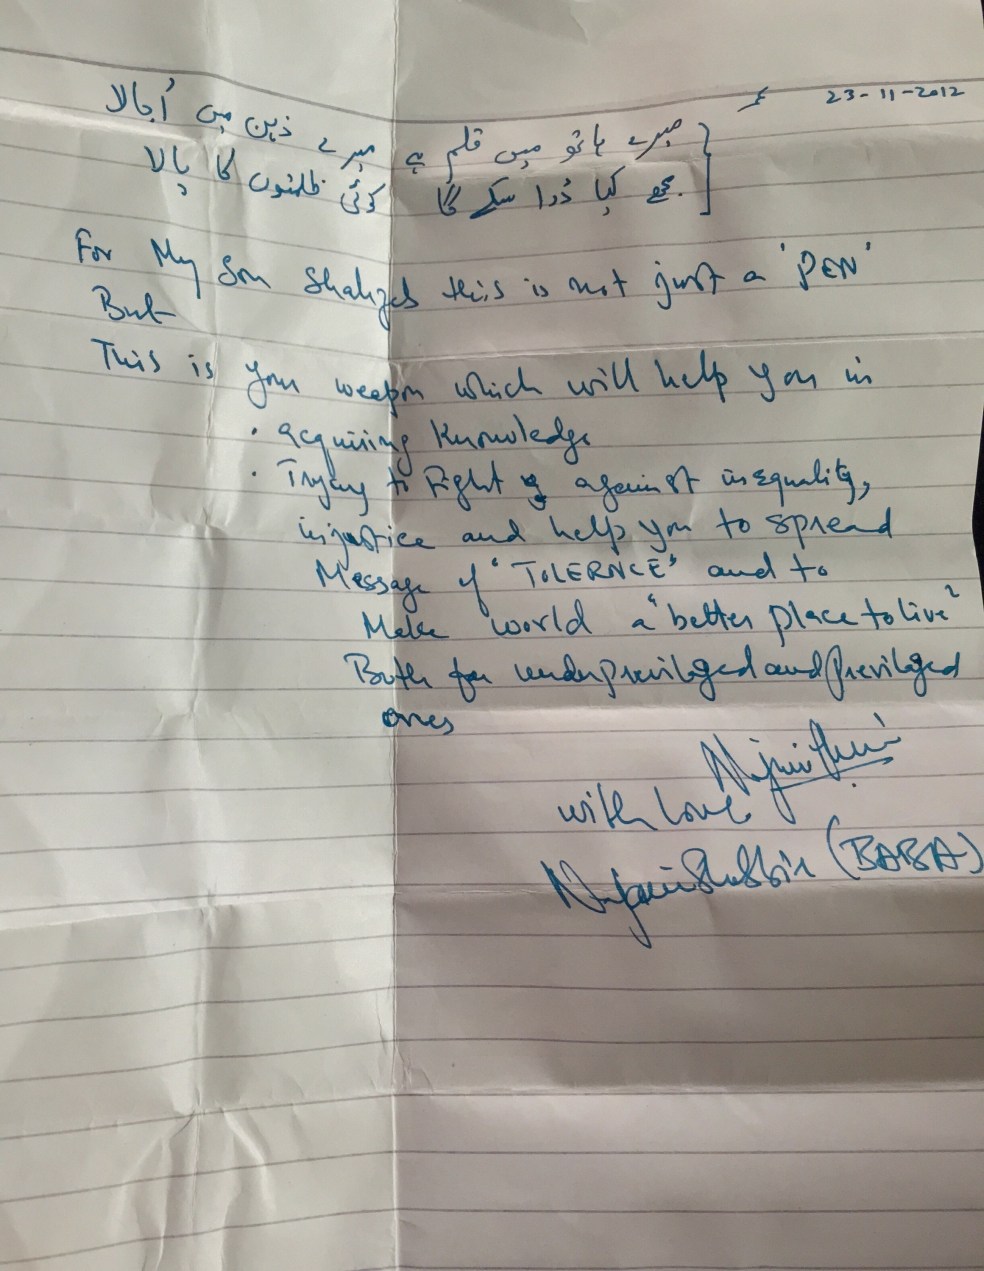 23-11-2012
میرے ہاتھ میں قلم ہے میرے ذہن میں اُجالا
مجھے کیا ڈرا سکے گا کوئی ظلمتوں کا پالا
For My Son Shahzeb this is not just a 'PEN'
But
This is your weapon which will help you in
• acquiring knowledge
• Trying to Fight against inequality,
injustice and help you to spread
Message of 'TOLERNCE' and to
Make world a "better place to live"
Both for underprevilaged and previlaged
ones
with Love
(BABA)